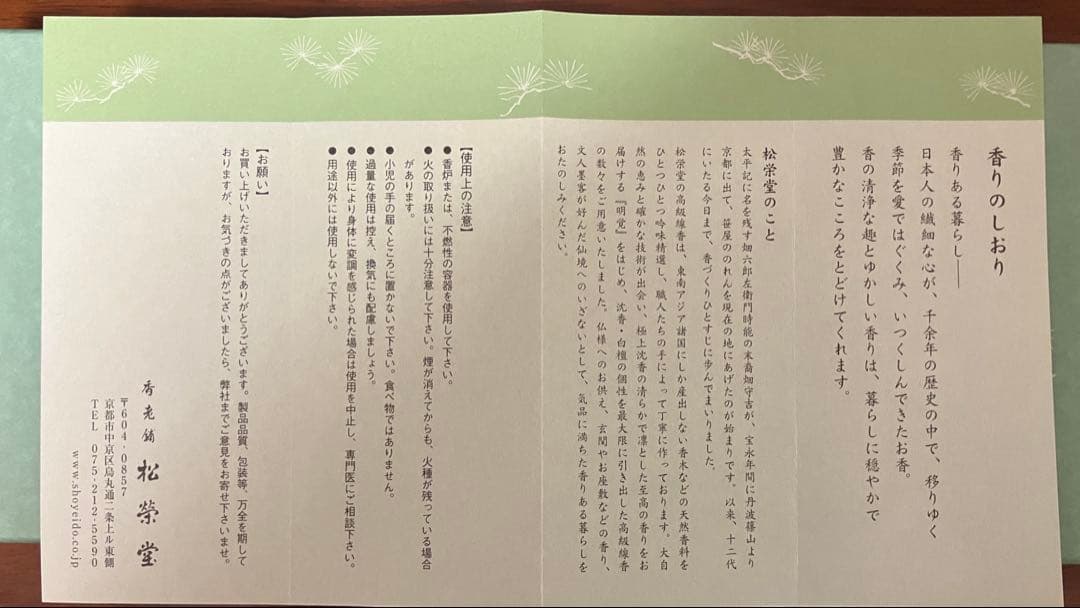 香りのしおり
香りある暮らし――
日本人の繊細な心が、千余年の歴史の中で、移りゆく
季節を愛ではぐくみ、いつくしんできたお香。
香の清浄な趣とゆかしい香りは、暮らしに穏やかで
豊かなこころをとどけてくれます。
松栄堂のこと
太平記に名を残す畑六郎左衛門時能の末裔畑守吉が、宝永年間に丹波篠山より
京都に出て、笹屋ののれんを現在の地にあげたのが始まりです。以来、十二代
にいたる今日まで、香づくりひとすじに歩んでまいりました。
松栄堂の高級線香は、東南アジア諸国にしか産出しない香木などの天然香料を
ひとつひとつ吟味精選し、職人たちの手によって丁寧に作っております。大自
然の恵みと確かな技術が出会い、極上沈香の清らかで凛とした至高の香りをお
届けする『明覚』をはじめ、沈香・白檀の個性を最大限に引き出した高級線香
の数々をご用意いたしました。仏様へのお供え、玄関やお座敷などの香り、
文人墨客が好んだ仙境へのいざないとして、気品に満ちた香りある暮らしを
おたのしみください。
【使用上の注意】
●香炉または、不燃性の容器を使用して下さい。
●火の取り扱いには十分注意して下さい。煙が消えてからも、火種が残っている場合
があります。
●小児の手の届くところに置かないで下さい。食べ物ではありません。
●過量な使用は控え、換気にも配慮しましょう。
●使用により身体に変調を感じられた場合は使用を中止し、専門医にご相談下さい。
●用途以外には使用しないで下さい。
【お願い】
お買い上げいただきましてありがとうございます。製品品質、包装等、万全を期して
おりますが、お気づきの点がございましたら、弊社までご意見をお寄せ下さいませ。
香老舗 松榮堂
〒604-0857
京都市中京区烏丸通二条上ル東側
TEL 075-212-5590
www.shoyeido.co.jp